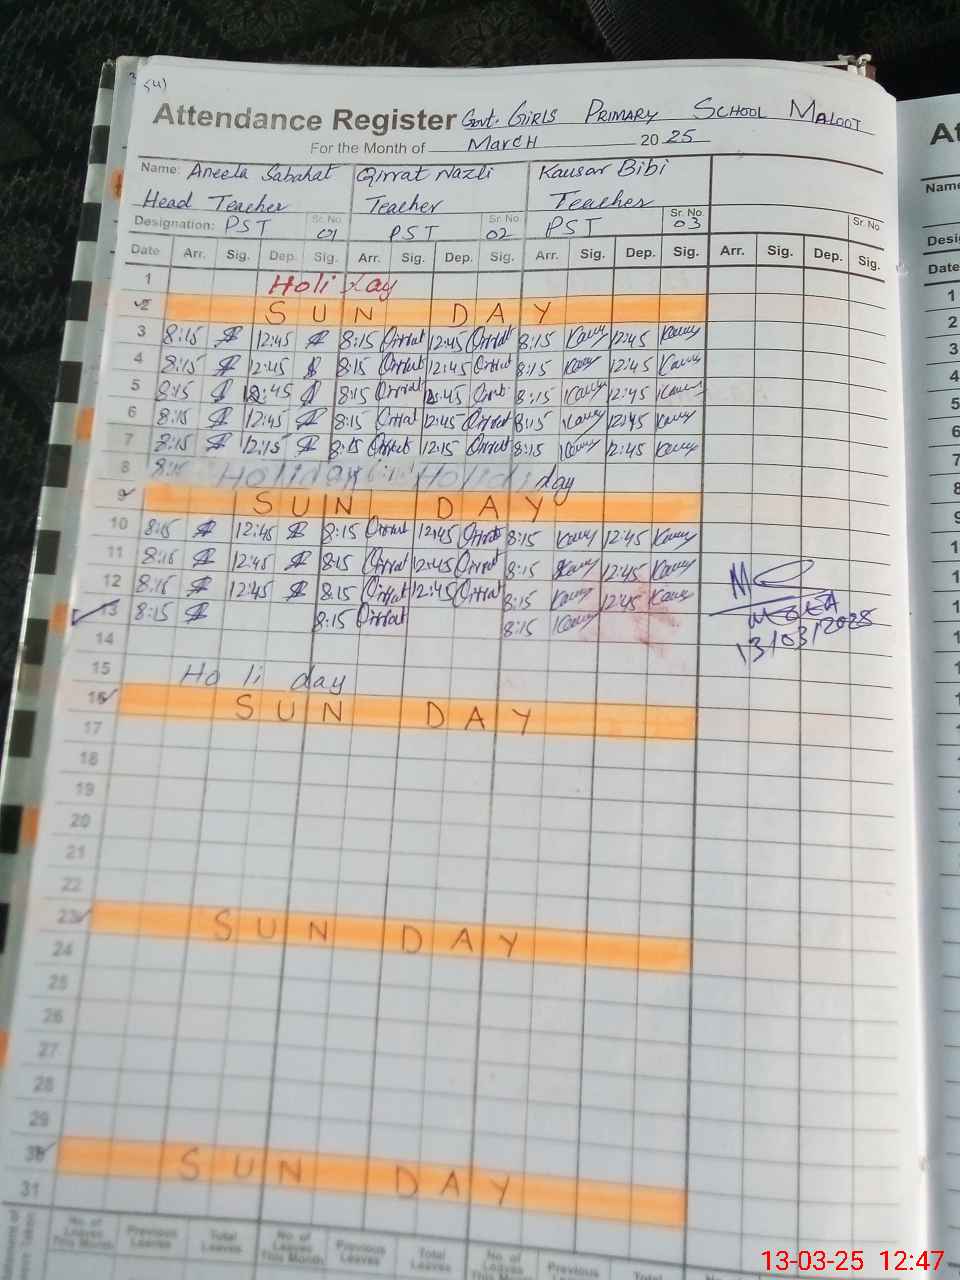 (4)
Attendance Register Govt. GIRLS PRIMARY SCHOOL MALOOT
For the Month of March 2025
Name: Aneela Sabahat Qirrat Nazli Kausar Bibi
Head Teacher Teacher Teacher
Designation: PST Sr. No. 01 PST Sr. No. 02 PST Sr. No. 03 Sr. No.
Date Arr. Sig. Dep. Sig. Arr. Sig. Dep. Sig. Arr. Sig. Dep. Sig. Arr. Sig. Dep. Sig.
1 Holiday
2 SUN DAY
3 8:15 12:45 8:15 Qirrat 12:45 Qirrat 8:15 12:45
4 8:15 12:45 8:15 Qirrat 12:45 Qirrat 8:15 12:45
5 8:15 12:45 8:15 Qirrat 12:45 8:15 12:45
6 8:15 12:45 8:15 Qirrat 12:45 Qirrat 8:15 12:45
7 8:15 12:15 8:15 Qirrat 12:15 Qirrat 8:15 12:45
8 8:15 Holiday Holiday
9 SUN DAY
10 8:15 12:45 8:15 Qirrat 12:45 Qirrat 8:15 12:45
11 8:15 12:45 8:15 Qirrat 12:45 Qirrat 8:15 12:45
12 8:15 12:45 8:15 Qirrat 12:45 Qirrat 8:15 12:45
13 8:15 8:15 Qirrat 8:15
13/03/2025
14
15 Holiday
16 SUN DAY
17
18
19
20
21
22
23 SUN DAY
24
25
26
27
28
29
30 SUN DAY
31
No. of Leaves This Month Previous Leaves Total Leaves No. of Leaves This Month Previous Leaves Total Leaves No. of Leaves This Month Previous Leaves Total
At
Name
Desi
Date
1
2
3
4
5
6
7
8
9
13-03-25 12:47